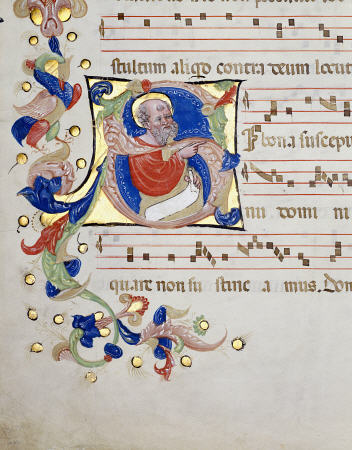 non
stultum aliqd contra deum locut
SI bona suscepi
nu domi ni
quare non su stinc a mus. Dom